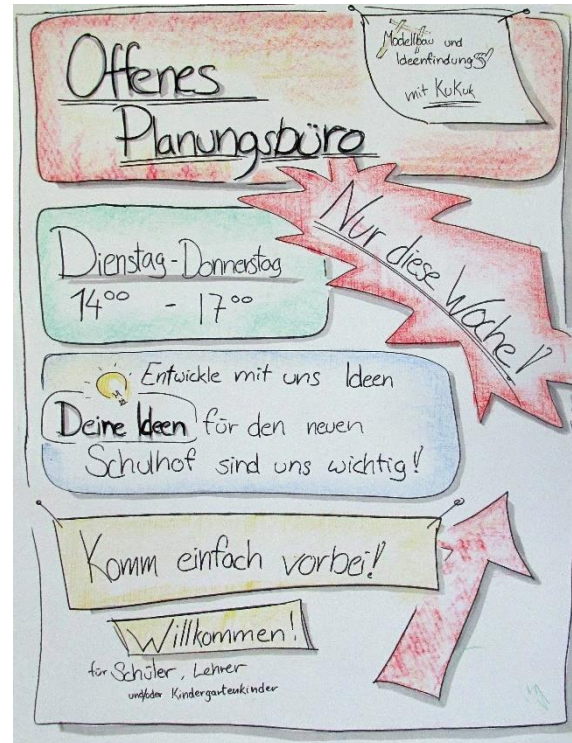 Offenes
Planungsbüro
Modellbau und
Ideenfindung
mit KuKuk
Nur diese Woche!
Dienstag - Donnerstag
14⁰⁰ - 17⁰⁰
Entwickle mit uns Ideen
Deine Ideen für den neuen
Schulhof sind uns wichtig!
Komm einfach vorbei!
Willkommen!
für Schüler, Lehrer
und/oder Kindergartenkinder